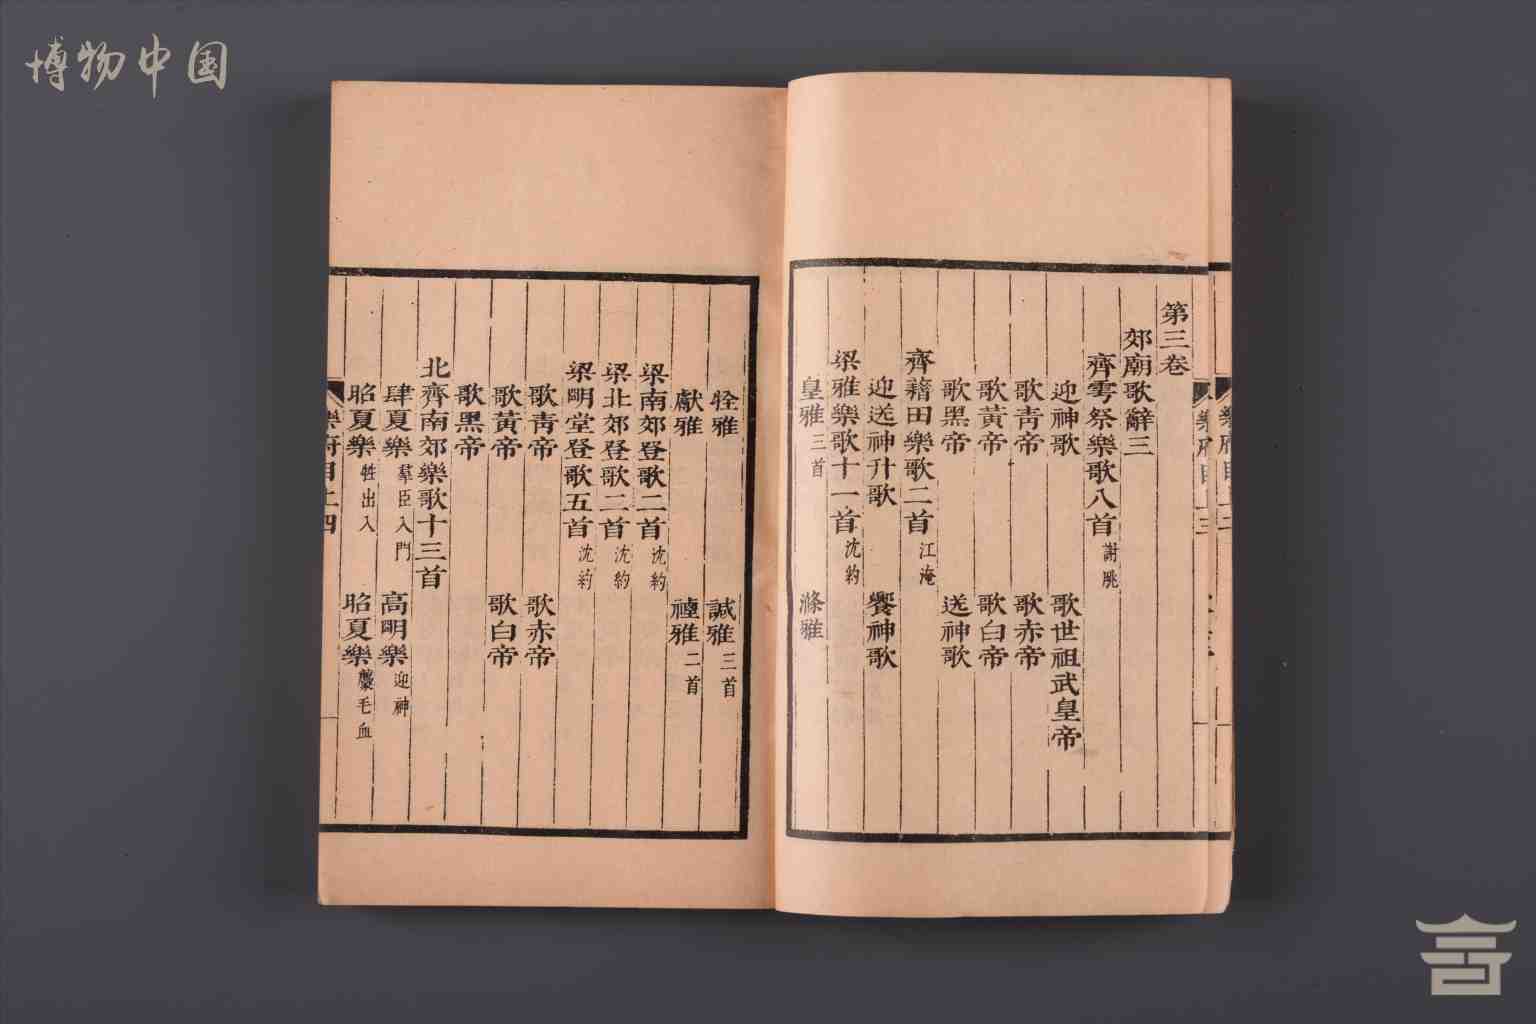 博物中国
第三卷
郊廟歌辭三
齊雩祭樂歌八首 謝朓
迎神歌 歌世祖武皇帝
歌靑帝 歌赤帝
歌黃帝 歌白帝
歌黑帝 送神歌
齊藉田樂歌二首 江淹
迎送神升歌 饗神歌
梁雅樂歌十一首 沈約
皇雅 三首 滌雅
牷雅 諴雅 三首
獻雅 禋雅 二首
梁南郊登歌二首 沈約
梁北郊登歌二首 沈約
梁明堂登歌五首 沈約
歌靑帝 歌赤帝
歌黃帝 歌白帝
歌黑帝
北齊南郊樂歌十三首
肆夏樂 羣臣入門 高明樂 迎神
昭夏樂 牲出入 昭夏樂 薦毛血
樂府目上四